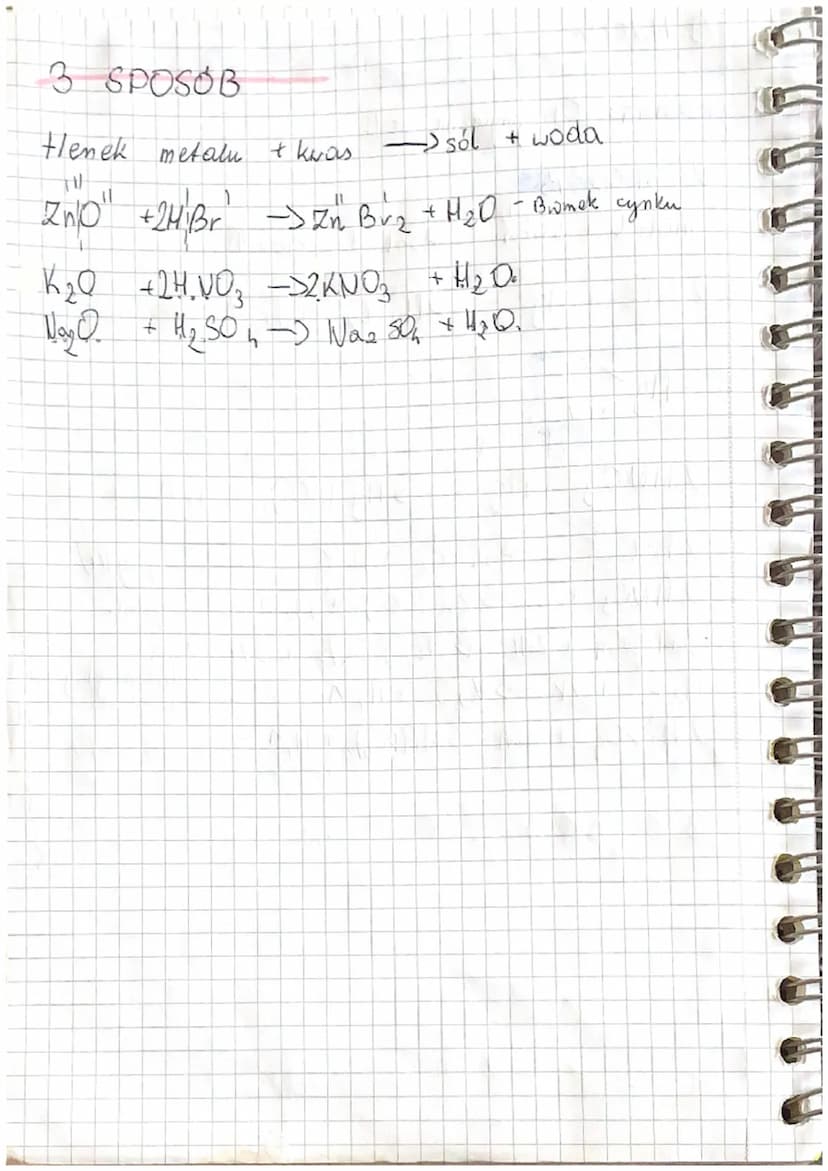 3 SPOSÓB
tlenek metalu + kwas → sól + woda
Zn|O + 2H|Br → ZnBr₂ + H₂O - Bromek cynku
K₂O + 2HNO₃ → 2KNO₃ + H₂O.
Na₂O. + H₂SO₄ → Na₂SO₄ + H₂O.